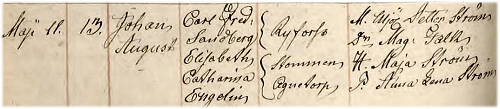 Maji 11. 13. Johan August
Carl Fred: Sandberg
Elisabeth Catharina Engelin
Ryforss
Stommen
Ægnetorp
M. Petter Ström
Dr. Mag: Falk
H. Maja Ström
P. Anna Lena Ström